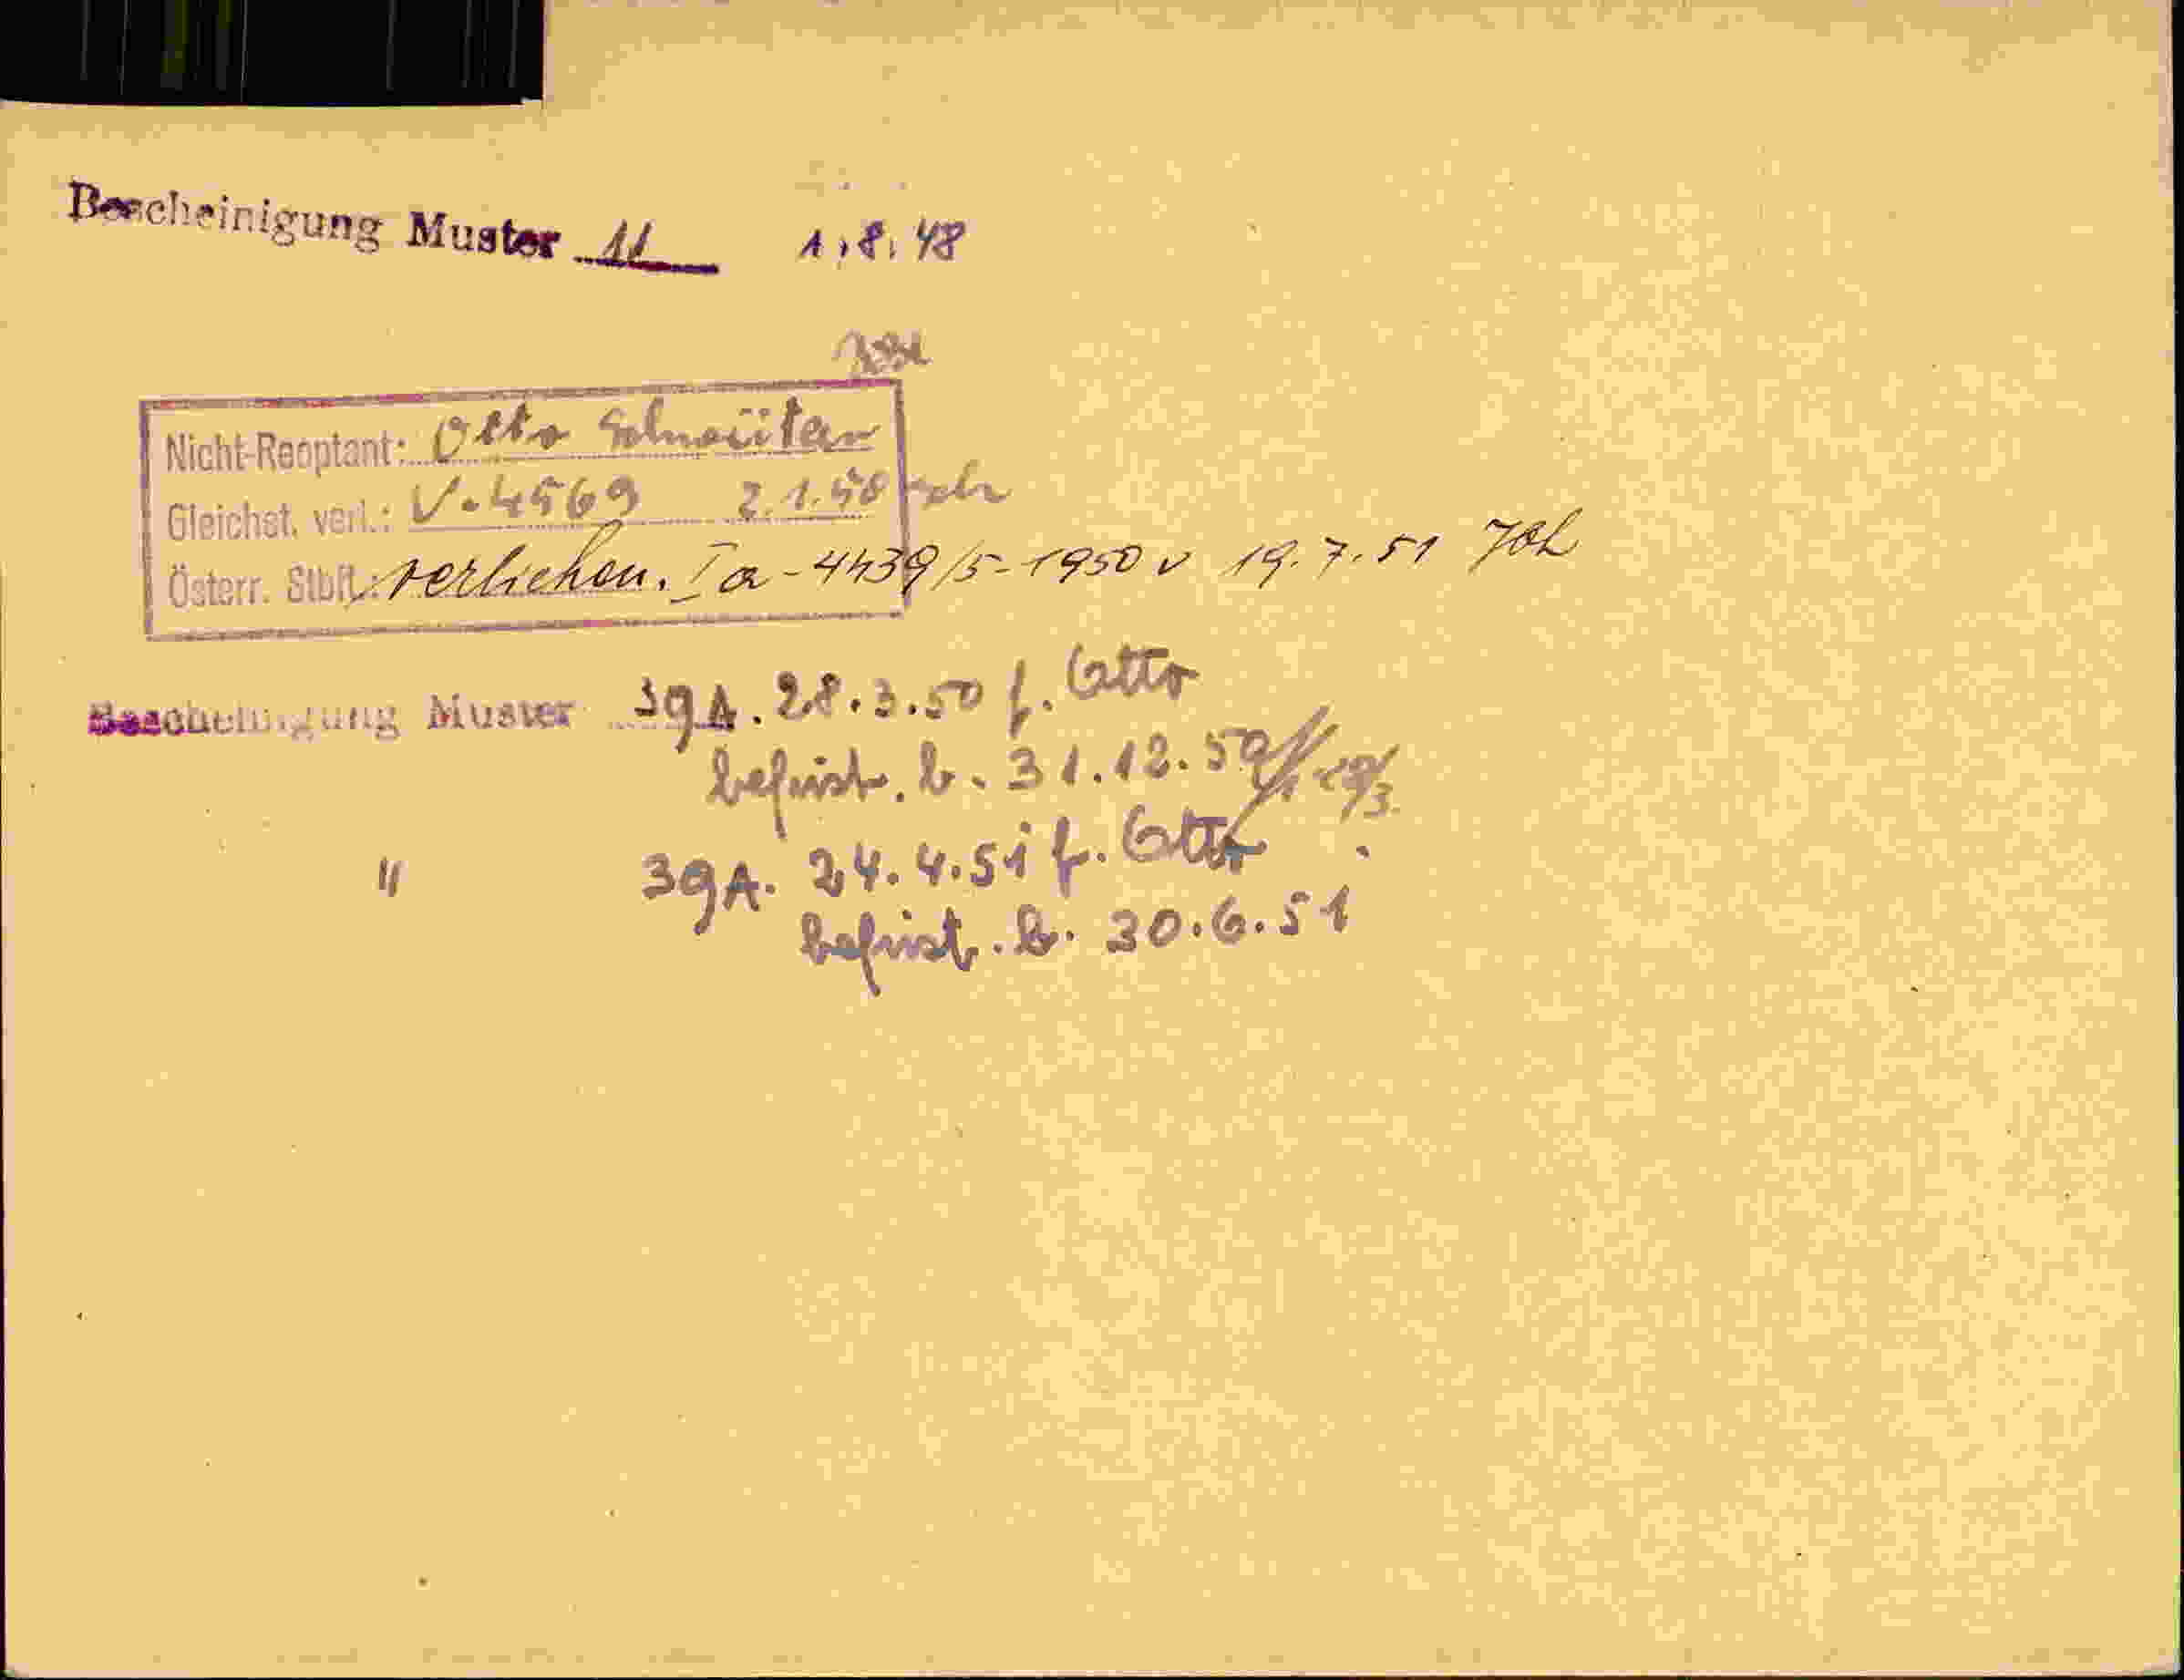 Bescheinigung Muster 11 1.8.48
Nicht-Reoptant: Otto
Gleichst. verl.: V. 4569 2.1.50
Österr. Stbft.: verliehen. Ia - 4439/5-1950 v 19.7.51
Bescheinigung Muster 39A. 28.3.50 f. Otto
befrist. b. 31.12.50
" 39A. 24.4.51 f. Otto
befrist. b. 30.6.51